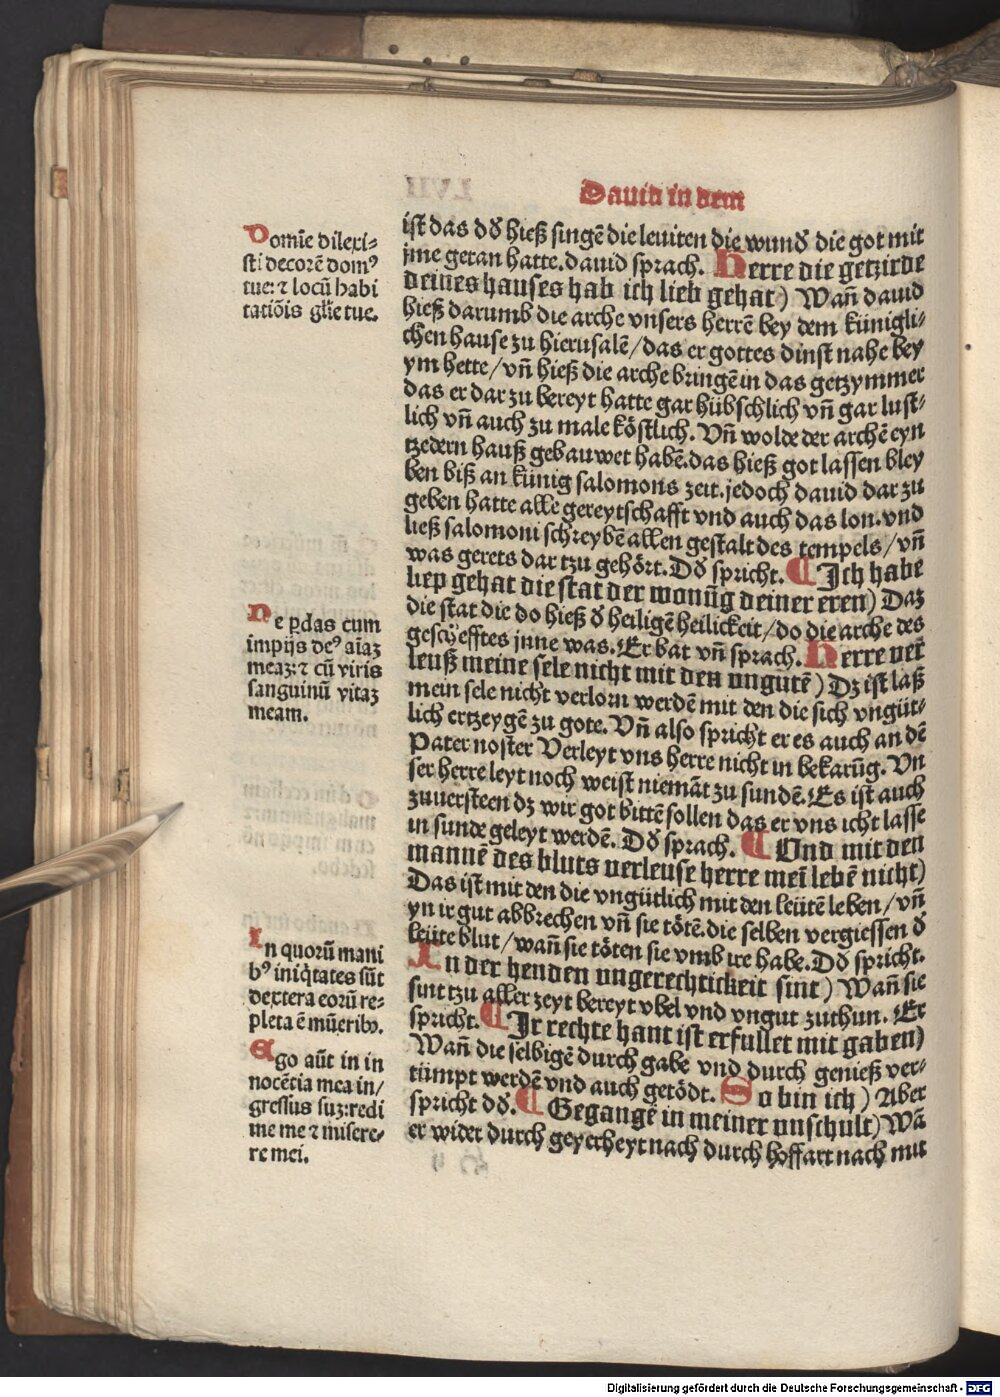 Dauid in dem
Domīe dilexi⸗
sti decorē domꝰ
tue: ⁊ locū habi
tatiōis gl̄ie tue.
Ne ꝑdas cum
impijs deꝰ aīaꝫ
meaꝫ: ⁊ cū viris
sanguinū vitaꝫ
meam.
In quorū mani
bꝰ iniq̇tates sūt
dextera eorū re⸗
pleta ē mūeribꝰ.
Ego aūt in in
nocētia mea in/
gressus suꝫ: redi
me me ⁊ misere⸗
re mei.
ist das dð hieß singē die leuiten die wunð die got mit
jme getan hatte. dauid sprach. Herre die getzirde
deines hauses hab ich lieb gehat) Wañ dauid
hieß darumb die arche vnsers herrē bey dem künigli⸗
chen hause zu hierusalē / das er gottes dinst nahe bey
ym hette / vñ hieß die arche bringē in das getzymmer
das er dar zu bereyt hatte gar hübschlich vñ gar lust⸗
lich vñ auch zu male köstlich. Vñ wolde der archē eyn
tzedern hauß gebauwet habē. das hieß got lassen bley
ben biß an künig salomons zeit. jedoch dauid dar zu
geben hatte alle gereytschafft vnd auch das lon. vnd
ließ salomoni schreyben allen gestalt des tempels / vñ
was gerets dar tzu gehört. Dð spricht. ¶ Ich habe
liep gehat die stat der wonūg deiner eren) Daz
die stat die do hieß ð heiligē heilickeit / do die arche des
geschefftes jnne was. Er bat vñ sprach. Herre ver
leuß meine sele nicht mit den vngutē) Dz ist laß
mein sele nicht verlorn werdē mit den die sich vngüt⸗
lich ertzeygē zu gote. Vñ also spricht er es auch an dē
Pater noster Verleyt vns herre nicht in bekarūg. Vn
ser herre leyt noch weist niemāt zu sundē. Es ist auch
zuuersteen dz wir got bittē sollen das er vns icht lasse
in sunde geleyt werdē. Dð sprach. ¶ Vnd mit den
mannē des bluts verleuse herre mei lebē nicht)
Das ist mit den die vngütlich mit den leütē leben / vñ
yn ir gut abbrechen vñ sie tötē. die selben vergiessen ð
leüte blut / wañ sie töten sie vmb ire habe. Dð spricht.
In der henden vngerechtickeit sint) Wañ sie
sint tzu aller zeyt bereyt vbel vnd vngut zuthun. Er
spricht. ¶ Ir rechte hant ist erfullet mit gaben)
Wañ die selbigē durch gabe vnd durch genieß ver⸗
tümpt werdē vnd auch getödt. So bin ich) Aber
spricht dð. ¶ Gegangē in meiner vnschult) Wā
er wider durch geyecheyt nach durch hoffart nach mit
Digitalisierung gefördert durch die Deutsche Forschungsgemeinschaft - DFG